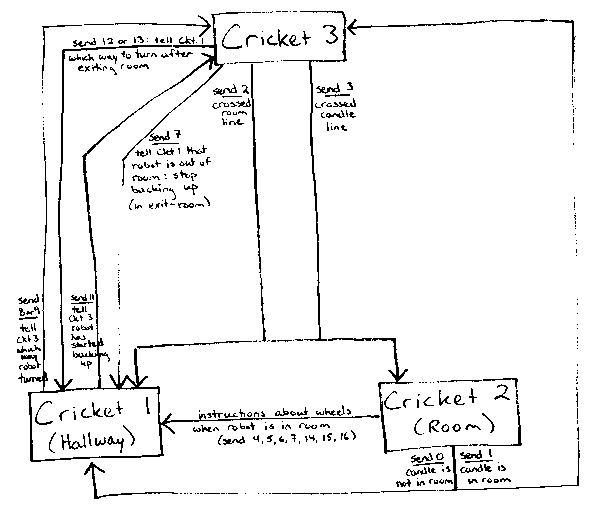 send 12 or 13: tell Ckt 1
which way to turn after
exiting room
Cricket 3
send 2
crossed
room
line
send 3
crossed
candle
line
send 7
tell Ckt 1 that
robot is out of
room: stop
backing up
(in exit-room)
send
8 or 9
tell
Ckt 3
which
way
robot
turned
send 11
tell
Ckt 3
robot
has
started
backing
up
Cricket 1
(Hallway)
instructions about wheels
when robot is in room
(send 4, 5, 6, 7, 14, 15, 16)
Cricket 2
(Room)
send 0
candle is
not in room
send 1
candle is
in room